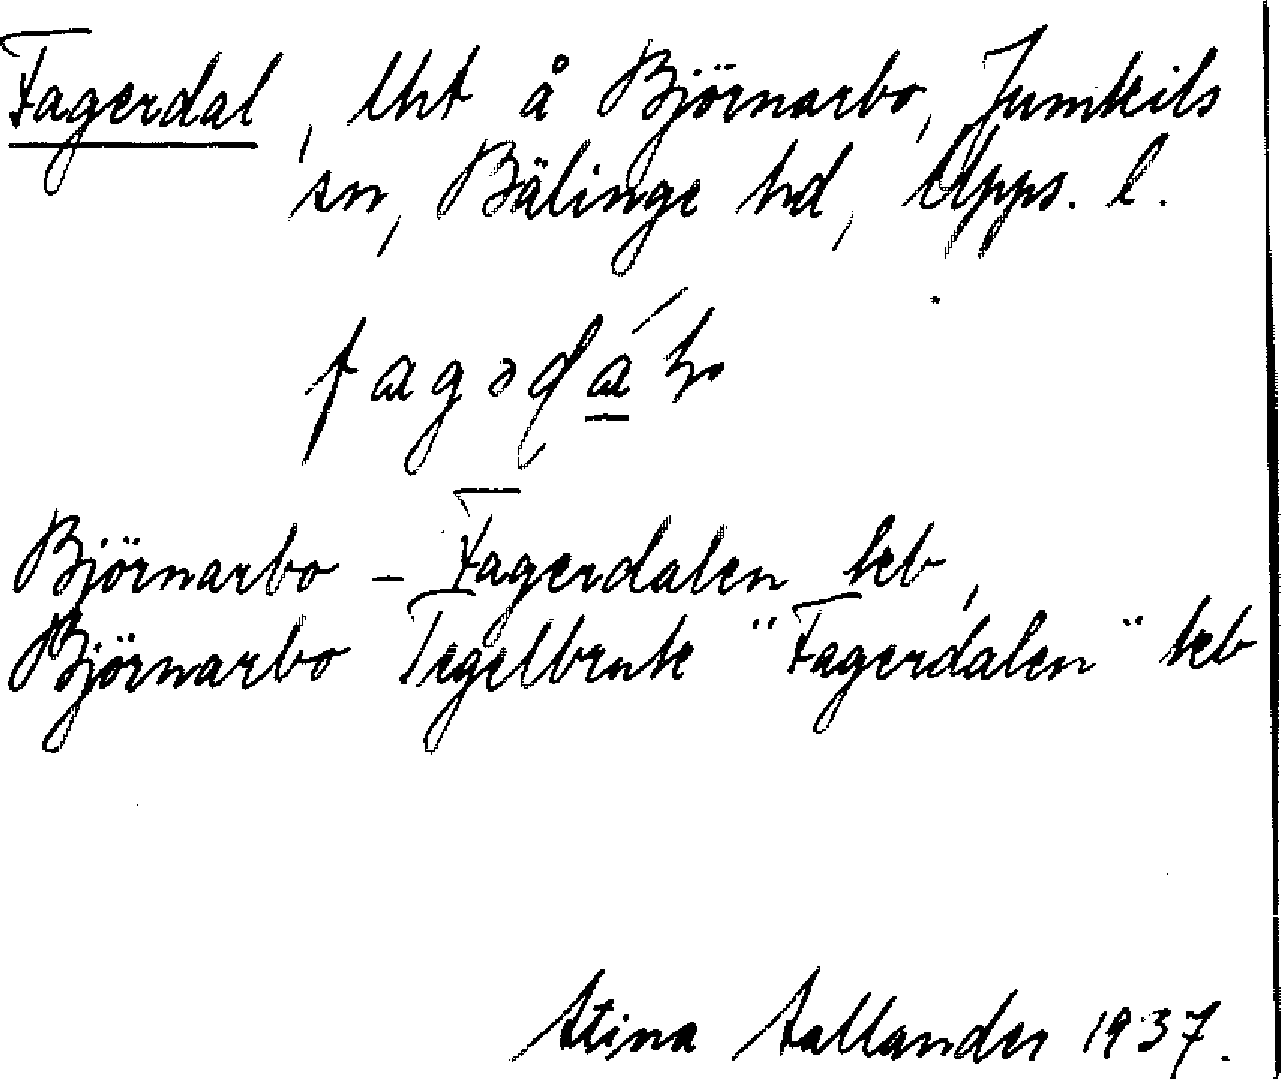 Fagerdal, lht å Björnarbo, Jumkils
sn, Bälinge hd, Upps. l.
Björnarbo – Fagerdalen keb,
Björnarbo Tegelbruk "Fagerdalen" keb
Stina Sallander 1937.